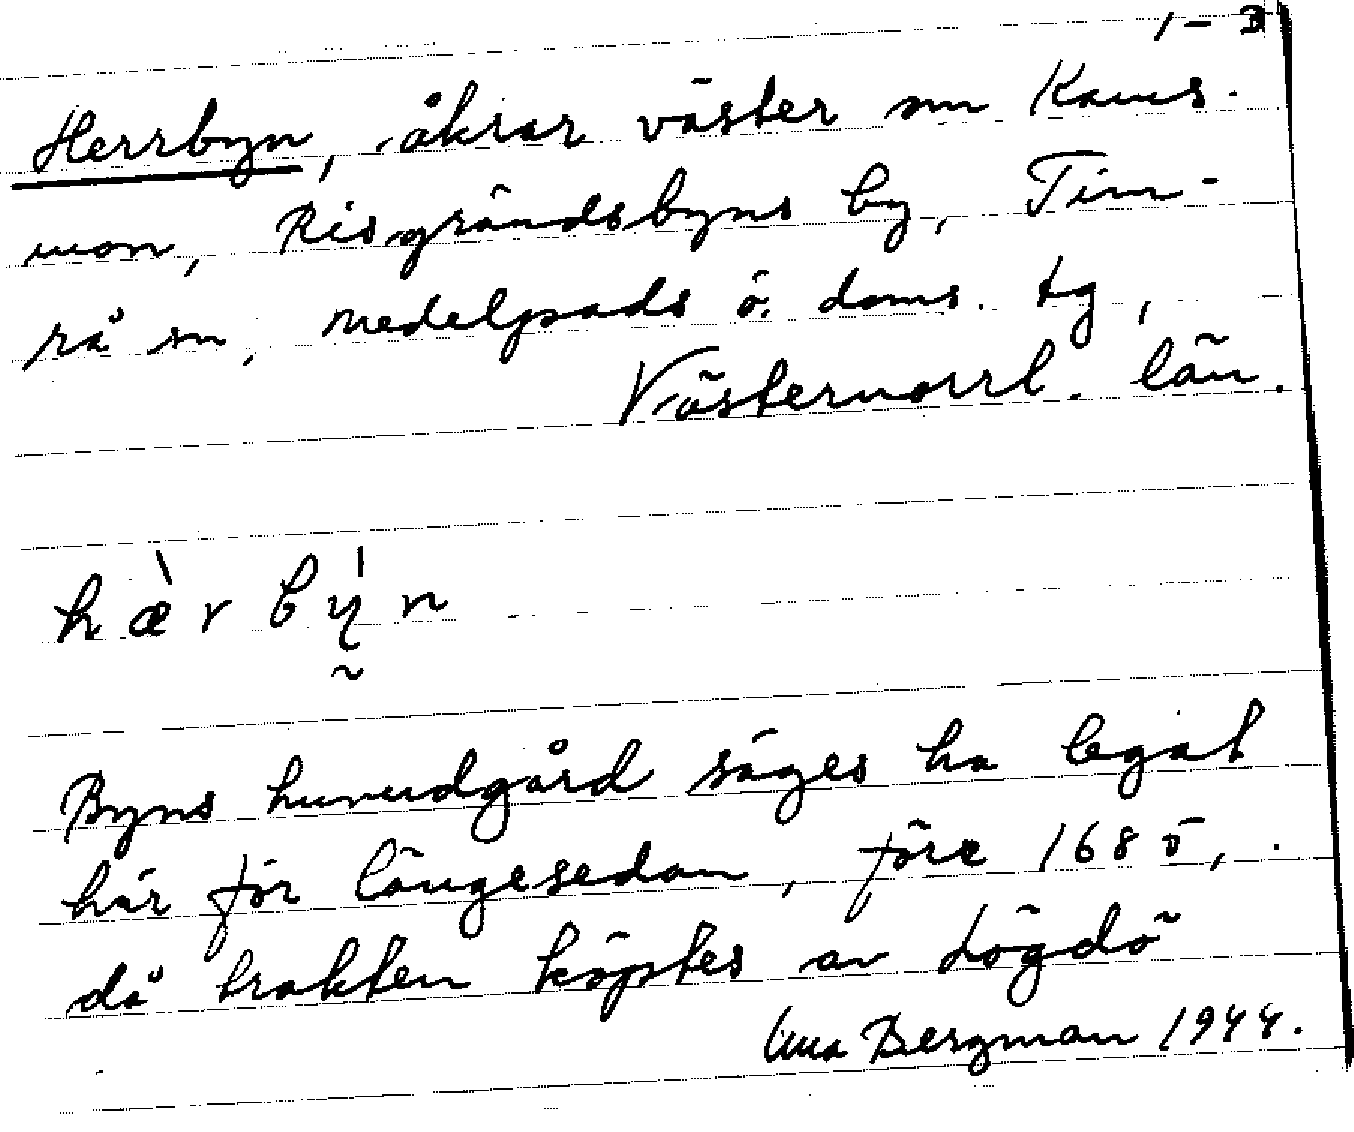 1-3
Herrbyn, åkrar väster om Kaus-
mon, Risgrändsbyns by, Tim-
rå sn, Medelpads ö. doms. tg,
Västernorrl. län.
hæ̀rbý̰n
Byns huvudgård säges ha legat
här för längesedan, före 1685,
då trakten köptes av Lögdö
Bergman 1944.